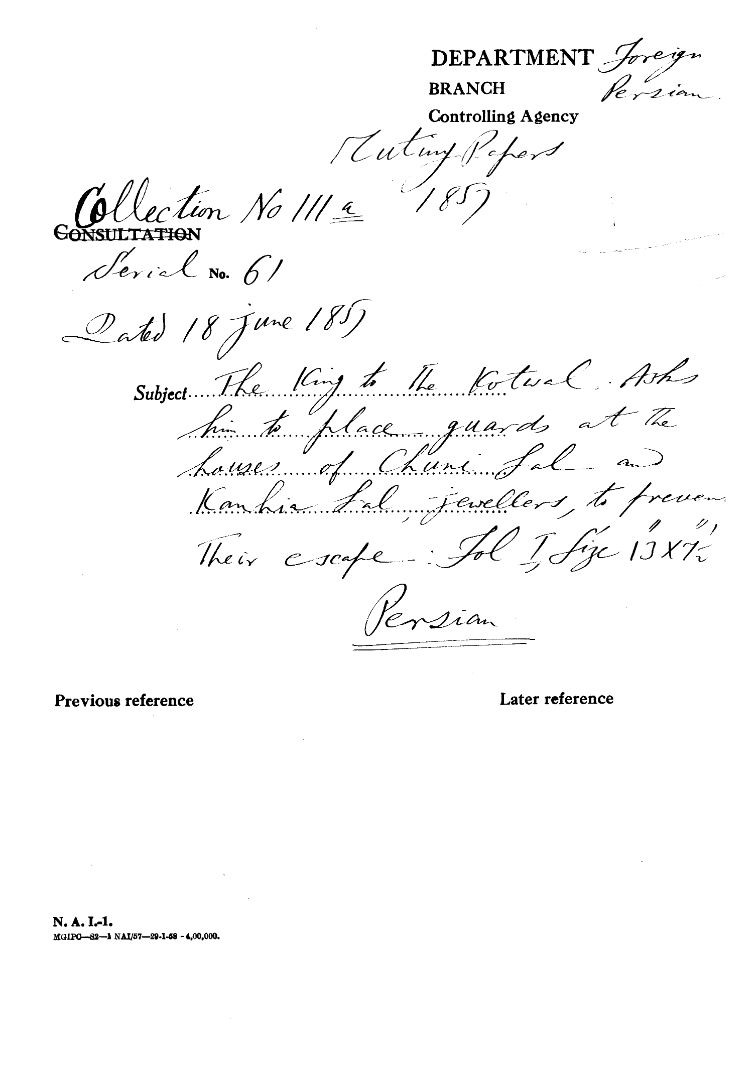 DEPARTMENT Foreign
BRANCH Persian
Controlling Agency
Mutiny Papers
1857
Collection No 111 a
CONSULTATION
Serial No. 61
Dated 18 June 1857
Subject The King to the Kotwal. Asks
him to place guards at the
houses of Chuni Lal and
Kanhia Lal, jewellers, to preven
their escape - : Fol I, Size 13" X 7½"
Persian
Previous reference Later reference
N. A. I.-1.
MGIPC—82—1 NAI/57—29-1-58 - 4,00,000.